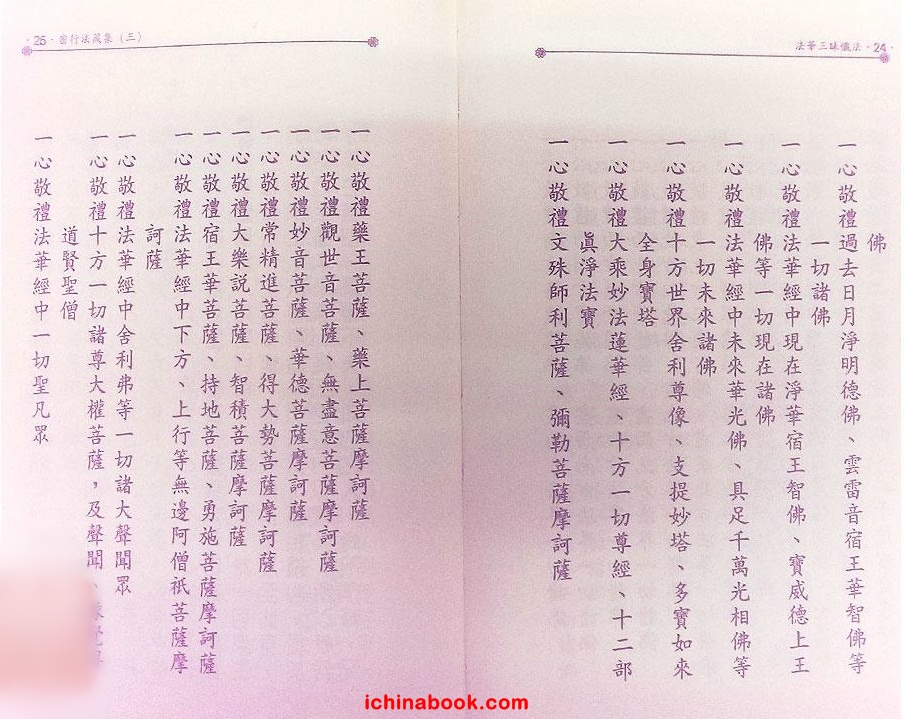 法華三昧懺法・24・
佛
一心敬禮過去日月淨明德佛、雲雷音宿王華智佛等
一切諸佛
一心敬禮法華經中現在淨華宿王智佛、寶威德上王
佛等一切現在諸佛
一心敬禮法華經中未來華光佛、具足千萬光相佛等
一切未來諸佛
一心敬禮十方世界舍利尊像、支提妙塔、多寶如來
全身寶塔
一心敬禮大乘妙法蓮華經、十方一切尊經、十二部
眞淨法寶
一心敬禮文殊師利菩薩、彌勒菩薩摩訶薩
・25・密行法藏集（三）
一心敬禮藥王菩薩、藥上菩薩摩訶薩
一心敬禮觀世音菩薩、無盡意菩薩摩訶薩
一心敬禮妙音菩薩、華德菩薩摩訶薩
一心敬禮常精進菩薩、得大勢菩薩摩訶薩
一心敬禮大樂說菩薩、智積菩薩摩訶薩
一心敬禮宿王華菩薩、持地菩薩、勇施菩薩摩訶薩
一心敬禮法華經中下方、上行等無邊阿僧祇菩薩摩
訶薩
一心敬禮法華經中舍利弗等一切諸大聲聞眾
一心敬禮十方一切諸尊大權菩薩，及聲聞、
道賢聖僧
一心敬禮法華經中一切聖凡眾
ichinabook.com